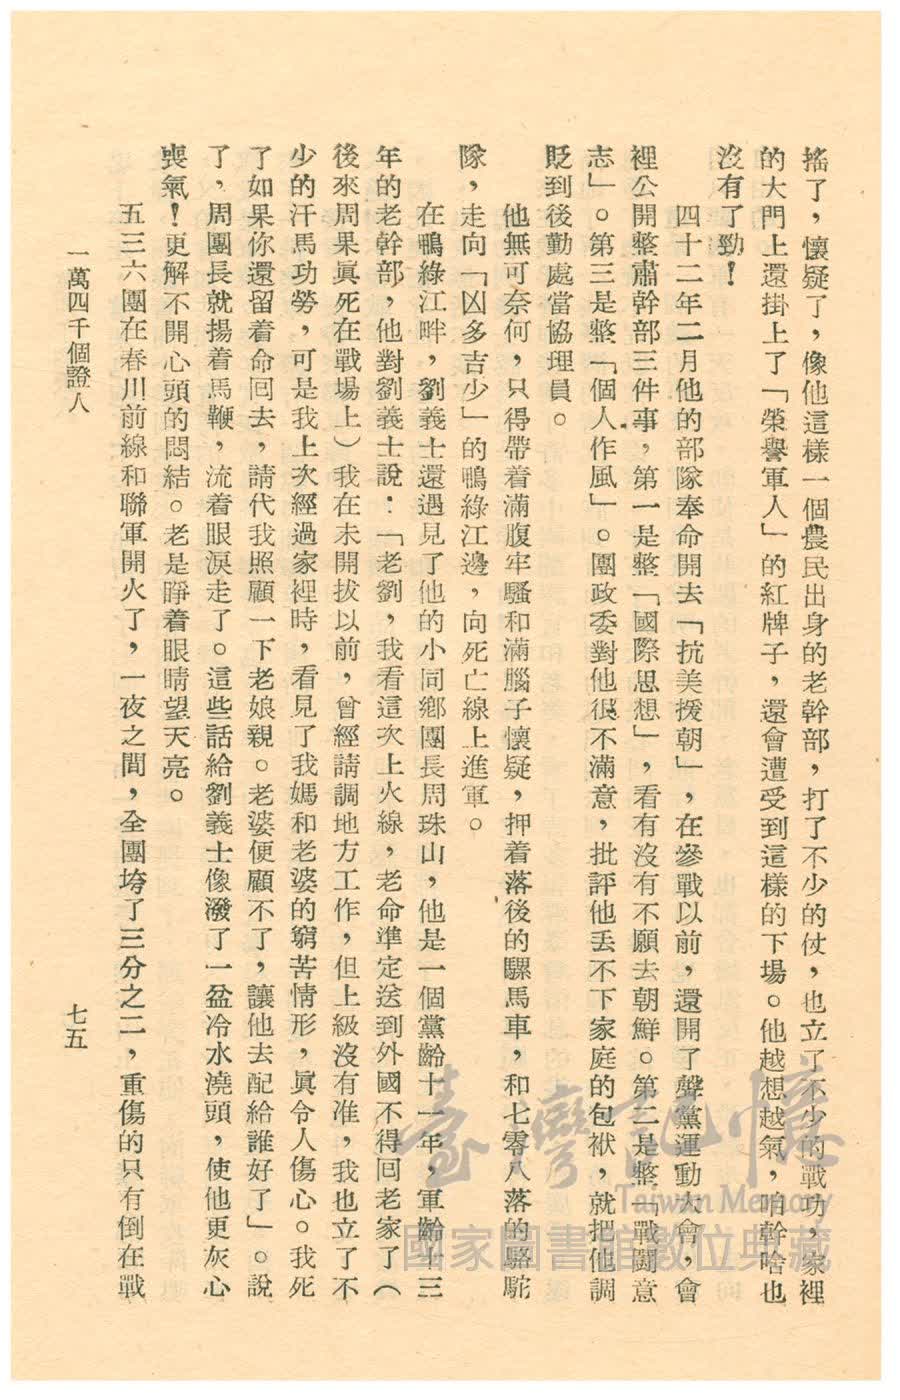 搖了，懷疑了，像他這樣一個農民出身的老幹部，打了不少的仗，也立了不少的戰功，家裡
的大門上還掛上了「榮譽軍人」的紅牌子，還會遭受到這樣的下場。他越想越氣，咱幹啥也
沒有了勁！
四十二年二月他的部隊奉命開去「抗美援朝」，在參戰以前，還開了整黨運動大會，會
裡公開整肅幹部三件事，第一是整「國際思想」，看有沒有不願去朝鮮。第二是整「戰鬪意
志」。第三是整「個人作風」。團政委對他很不滿意，批評他丟不下家庭的包袱，就把他調
貶到後勤處當協理員。
他無可奈何，只得帶着滿腹牢騷和滿腦子懷疑，押着落後的騾馬車，和七零八落的駱駝
隊，走向「凶多吉少」的鴨綠江邊，向死亡線上進軍。
在鴨綠江畔，劉義士還遇見了他的小同鄉團長周珠山，他是一個黨齡十一年，軍齡十三
年的老幹部，他對劉義士說：「老劉，我看這次上火線，老命準定送到外國不得回老家了（
後來周果眞死在戰場上）我在未開拔以前，曾經請調地方工作，但上級沒有准，我也立了不
少的汗馬功勞，可是我上次經過家裡時，看見了我媽和老婆的窮苦情形，眞令人傷心。我死
了如果你還留着命回去，請代我照顧一下老娘親。老婆便顧不了，讓他去配給誰好了」。說
了，周團長就揚着馬鞭，流着眼淚走了。這些話給劉義士像潑了一盆冷水澆頭，使他更灰心
喪氣！更解不開心頭的悶結。老是睜着眼睛望天亮。
五三六團在春川前線和聯軍開火了，一夜之間，全團垮了三分之二，重傷的只有倒在戰
一萬四千個證人
七五
臺灣記憶
Taiwan Memory
國家圖書館數位典藏